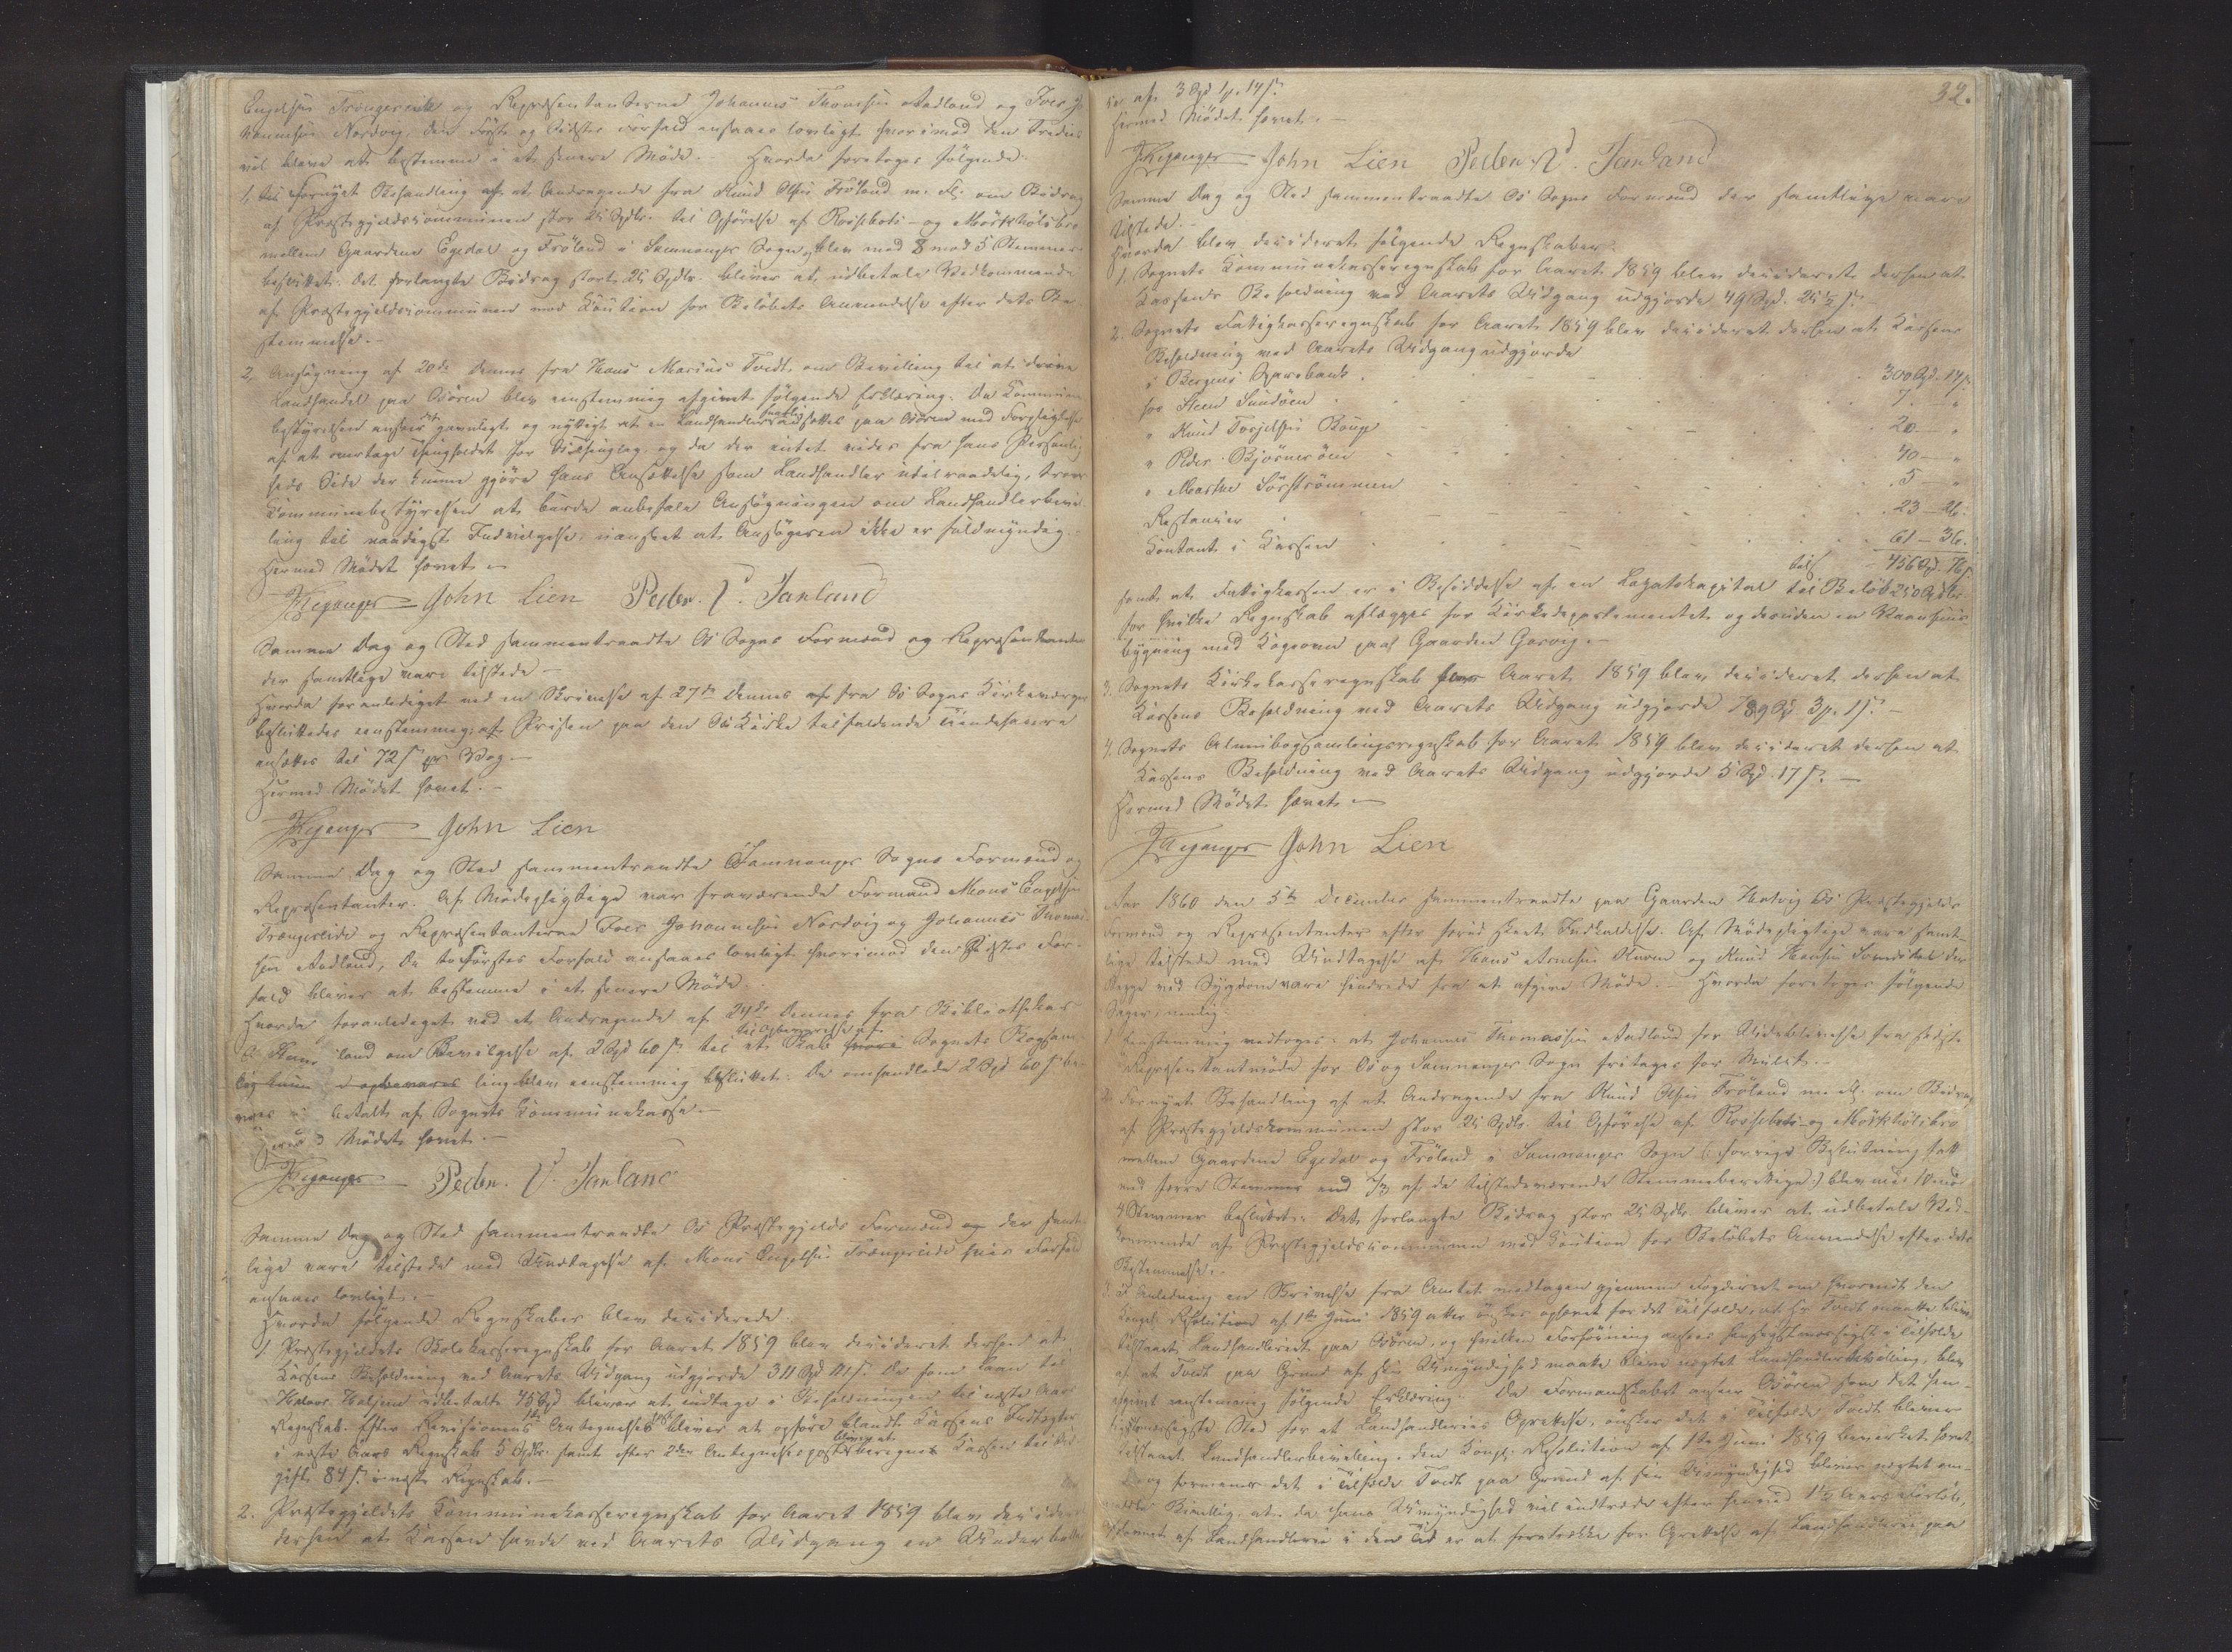 Engelsen Trængereide og Repræsentanterne Johannes Thomsen Aadland og Iver Jo-
hannesen Nordvig, den Første og Sidstes Forfald ansaaes lovligt hvorimod den Tredies
vil blive at bestemme i et senere Møde. Hvorda foretoges følgende:
1, til fornyet Behandling af et Andragende fra Knud Olsen Frøland m. Fl. om Bidrag
af Præstegjeldscommunen stor 25 Spdlr. til Opførelse af Rosseboti- og Mørkhølsbro
mellem Gaardene Egedal og Frøland i Samnanger Sogn, blev med 8 mod 5 Stemmer
besluttet: det forlangte Bidrag stort 25 Spdlr. bliver at udbetale Vedkommende
af Præstegjeldscommunen mod Caution for Beløbets Anvendelse efter dets Be-
stemmelse.–
2, Ansøgning af 20de dennes fra Hans Marius Tvedt om Bevilling til at drive
Landhandel paa Osøren blev eenstemmig afgivet følgende Erklæring: Da Commune-
bestyrelsen anseer det gavnligt og nyttigt at en Landhandler ansættes paa Osøren med Forpligtelse
af at overtage Thingholdet for Os Thinglag og da der intet vides fra hans Personlig-
heds Side der kunne gjøre hans Ansættelse som Landhandler utilraadelig, troer
Communebestyrelsen at burde anbefale Ansøgningen om Landhandlerbevil-
ling til naadigst Indvilgelse, uanseet at Ansøgeren ikke er fuldmyndig.
Hermed Mødet hævet.–
John Lien Peder P. Janland
Samme Dag og Sted sammentraadte Os Sogns Formænd og Repræsentanter
der samtlige vare tilstede –
Hvorda foranlediget ved en Skrivelse af 27de dennes af fra Os Sogns Kirkeværger
besluttedes eenstemmig: at Prisen paa den Os Kirke tilfaldende Tiendehavre
ansættes til 72 s pr Vog.–
Hermed Mødet hævet.–
John Lien
Samme Dag og Sted sammentraadte Samnanger Sogns Formænd og
Repræsentanter. Af Mødepligtige var fraværende Formand Mons Engelsen
Trængereide og Repræsentanterne Iver Johannesen Nordvig og Johannes Thom-
sen Aadland, de to Førstes Forfald ansaaes lovligt hvorimod den Sidstes For-
fald bliver at bestemme i et senere Møde.
Hvorda foranlediget ved et Andragende af 24de dennes fra Bibliothekar
land om Bevilgelse af 2 Spd 60 s til et Skab til Opbevarelse af Sognets Bogsam-
ling blev eenstemmig besluttet: De omhandlede 2 Spd 60 s be-
betalt af Sognets Communekasse.–
Mødet hævet.–
Peder P. Janland
Samme Dag og Sted sammentraadte Os Præstegjelds Formænd og der samt-
lige vare tilstede med Undtagelse af Mons Engelsen Trængereide hvis Forfald
ansaaes lovligt.–
Hvorda følgende Regnskaber blev deciderede.
1. Præstegjeldets Skolekasseregnskab for Aaret 1859 blev decideret derhen at
Kassens Beholdning ved Aarets Udgang udgjorde 311 Spd 41 s. De som Laan til
udbetalte 45 Spd bliver at indtage i Beholdningen til næste Aars
Regnskab. Efter Revisionens 1ste Antegnelse bliver at opføre blandt Kassens Indtægter
i næste Aars Regnskab 5 Spdlr. samt efter 2den Antegnelsespost bliver at beregnes Kassen til Ud-
gift 84 s i næste Regnskab.–
2. Præstegjeldets Communekasseregnskab for Aaret 1859 blev decideret
derhen at Kassen havde ved Aarets Udgang en Underballance
32.
af 3 Spd 1 p. 14 s.
Hermed Mødet hævet.–
John Lien Peder P. Janland
Samme Dag og Sted sammentraadte Os Sogns Formænd der samtlige vare
tilstede.–
Hvorda blev decideret følgende Regnskaber:
1. Sognets Communekasseregnskab for Aaret 1859 blev decideret derhen at
Kassens Beholdning ved Aarets Udgang udgjorde 49 Spd. 25½ s.–
2. Sognets Fattigkasseregnskab for Aaret 1859 blev decideret derhen at Kassens
Beholdning ved Aarets Udgang udgjorde
i Bergens Sparebank 300 Spd. 14 s.
hos Steen Sundøen 7 "
" Knud Torjelsen Bouge 20 – "
" Peder Bjørnerøen 40 – "
" Marthe Sørstrømmen 5 – "
Restancer 23 – 26.
Contant i Kassen 61 – 36.
tils. 456 Spd. 76 s
samt at Fattigkassen er i Besiddelse af en Legatskapital til Beløb 250 Spdlr.
for hvilke Regnskab aflægges for Kirkedepartementet og desuden en Vaanhuus-
bygning med Kogeovn paa Gaarden Gaasvig.–
3. Sognets Kirkekasseregnskab for Aaret 1859 blev decideret derhen at
Kassens Beholdning ved Aarets Udgang udgjorde 189 Spd. 3 p. 1 s.–
4. Sognets Almuebogsamlingsregnskab for Aaret 1859 blev decideret derhen at
Kassens Beholdning ved Aarets Udgang udgjorde 5 Spd. 17 s.–
Hermed Mødet hævet.–
John Lien
Aar 1860 den 5te December sammentraadte paa Gaarden Hatvig Os Præstegjelds
Formænd og Repræsentanter efter forud skeet Indkaldelse. Af Mødepligtige vare samt-
lige tilstede med Undtagelse af Hans Arnesen Kuven og Knud Hansen der
begge ved Sygdom vare hindrede fra at afgive Møde.– Hvorda foretoges følgende
Sager, nemlig:
Eenstemmig vedtoges: at Johannes Thomassen Aadland for Udeblivelse fra sidste
Repræsentantmøde for Os og Samnanger Sogn fritages for Mulct.–
Fornyet Behandling af et Andragende fra Knud Olsen Frøland m. Fl. om Bidrag
af Præstegjeldscommunen stor 25 Spdlr. til Opførelse af Rosseboti- og Mørkhølsbro
mellem Gaardene Egedal og Frøland i Samnanger Sogn (: forrige Beslutning fatt
med færre Stemmer end 2/3 af de tilstedeværende Stemmeberettigede :) blev med 10 mod
4 Stemmer besluttet: Det forlangte Bidrag stor 25 Spdlr. bliver at udbetale Ved-
kommende af Præstegjeldscommunen mod Caution for Beløbets Anvendelse efter dets
Bestemmelse.–
3. I Anledning en Skrivelse fra Amtet modtagen gjennem Fogderiet om hvorvidt den
Kongel. Resolution af 1ste Juni 1859 atter ønskes ophævet for det Tilfælde, at Hr Tvedt maatte blive
tilstaaet Landhandleriet paa Osøren, og hvilken Forføining ansees hensigtsmæssigst i Tilfælde
af at Tvedt paa Grund af sin Umyndighed maatte blive nægtet Landhandlerbevilling, blev
afgivet eenstemmig følgende Erklæring: Da Formandskabet anseer Osøren som det hen-
sigtsmæssigste Sted for et Landhandleries Oprettelse, ønsker det i Tilfælde Tvedt bliver
tilstaaet Landhandlerbevilling, den Kongl. Resolution af 1ste Juni 1859 bevirket hævet.
formener det i Tilfælde Tvedt paa Grund af sin Umyndighed bliver nægtet om-
Bevilling, at da hans Umyndighed vil indtræde efter henved 1½ Aars Forløb,
af Landhandlerie i den Tid er at foretrække for Oprettelse af Landhandlerie paa